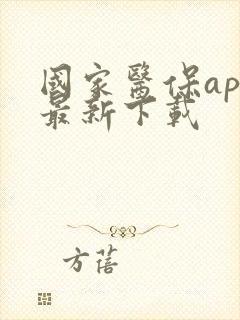 國家醫保ap
最新下載
方蓓